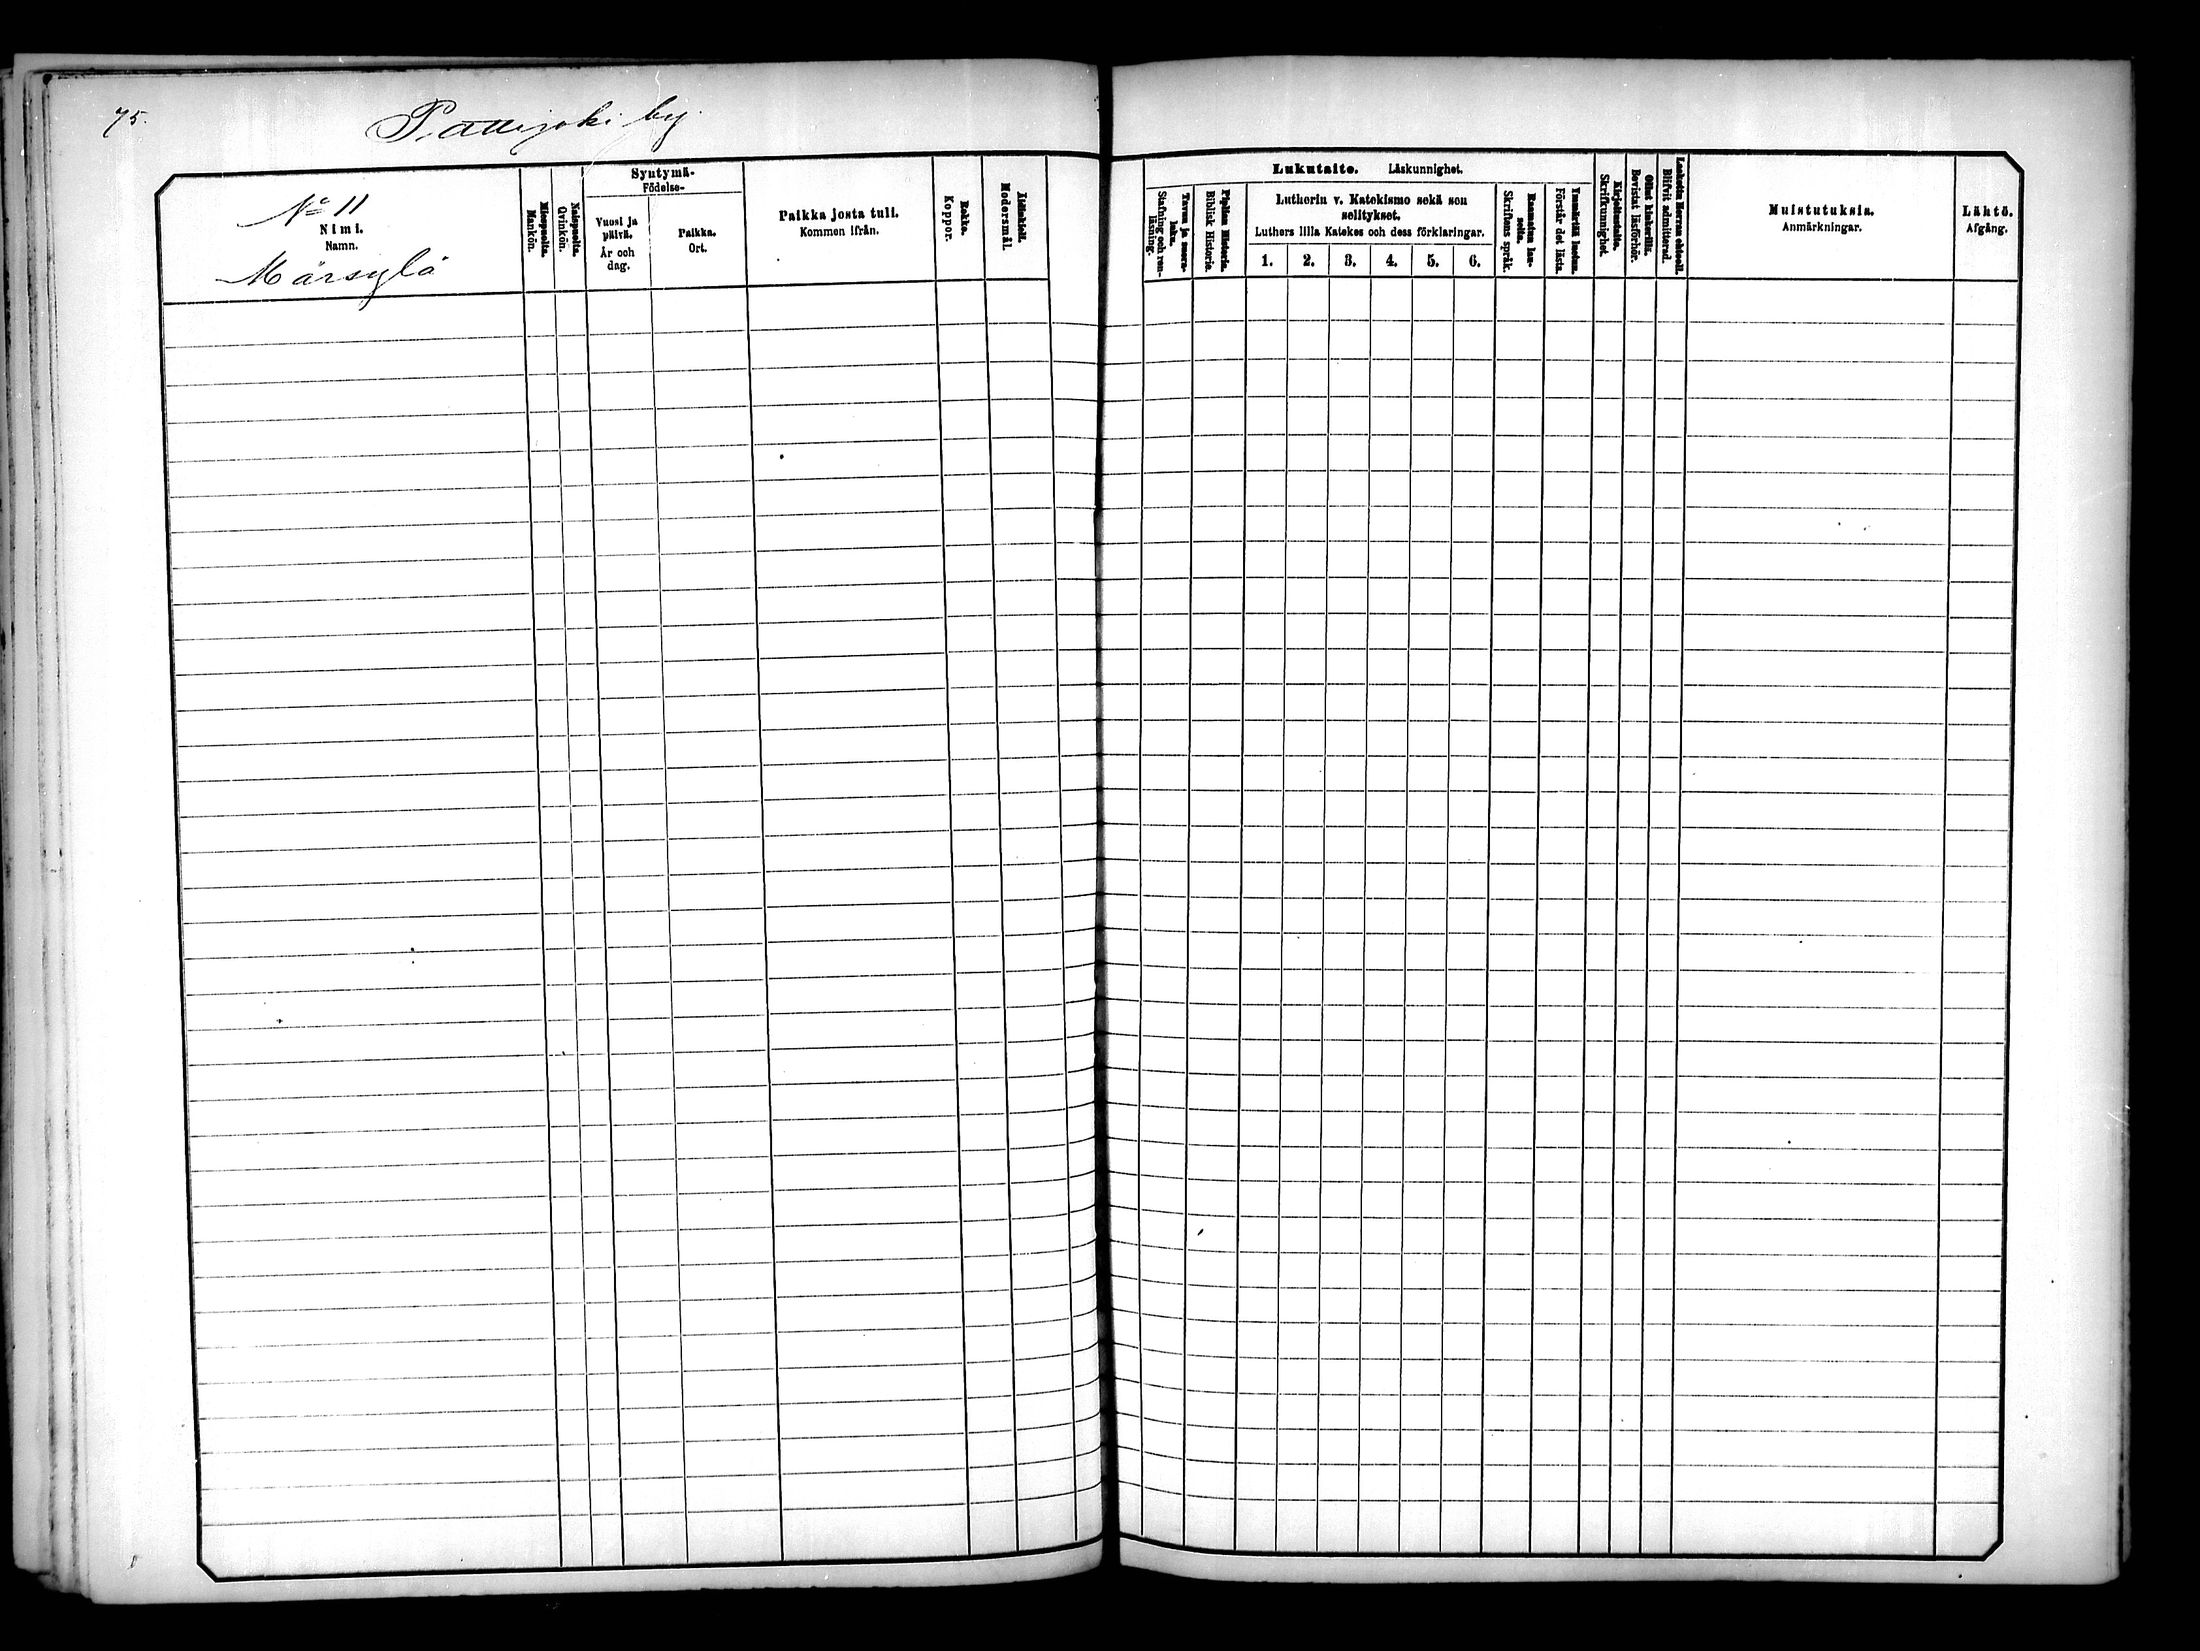 75.
Pattijoki by.
No 11
Nimi.
Namn.
Märsylä
Miespuolia.
Mankön.
Naispuolia.
Qvinkön.
Syntymä-
Födelse-
Vuosi ja
päivä.
År och
dag.
Paikka.
Ort.
Paikka josta tuli.
Kommen ifrån.
Rokko.
Koppor.
Äidinkieli.
Modersmål.
Lukutaito. Läskunnighet.
Tavuu ja suora-
luku.
Stafning och ren-
läsning.
Piplian Historia.
Biblisk Historie.
Lutherin v. Katekismo sekä sen
selitykset.
Luthers lilla Katekes och dess förklaringar.
1. 2. 3. 4. 5. 6.
Raamatun lau-
seita.
Skriftens språk.
Ymmärtää luetun.
Förstår det lästa.
Kirjoitustaito.
Skrifkunnighet.
Ollut kinkerillä.
Bevistat läsförhör.
Laskettu Herran ehtool.
Blifvit admitterad.
Muistutuksia.
Anmärkningar.
Lähtö.
Afgång.